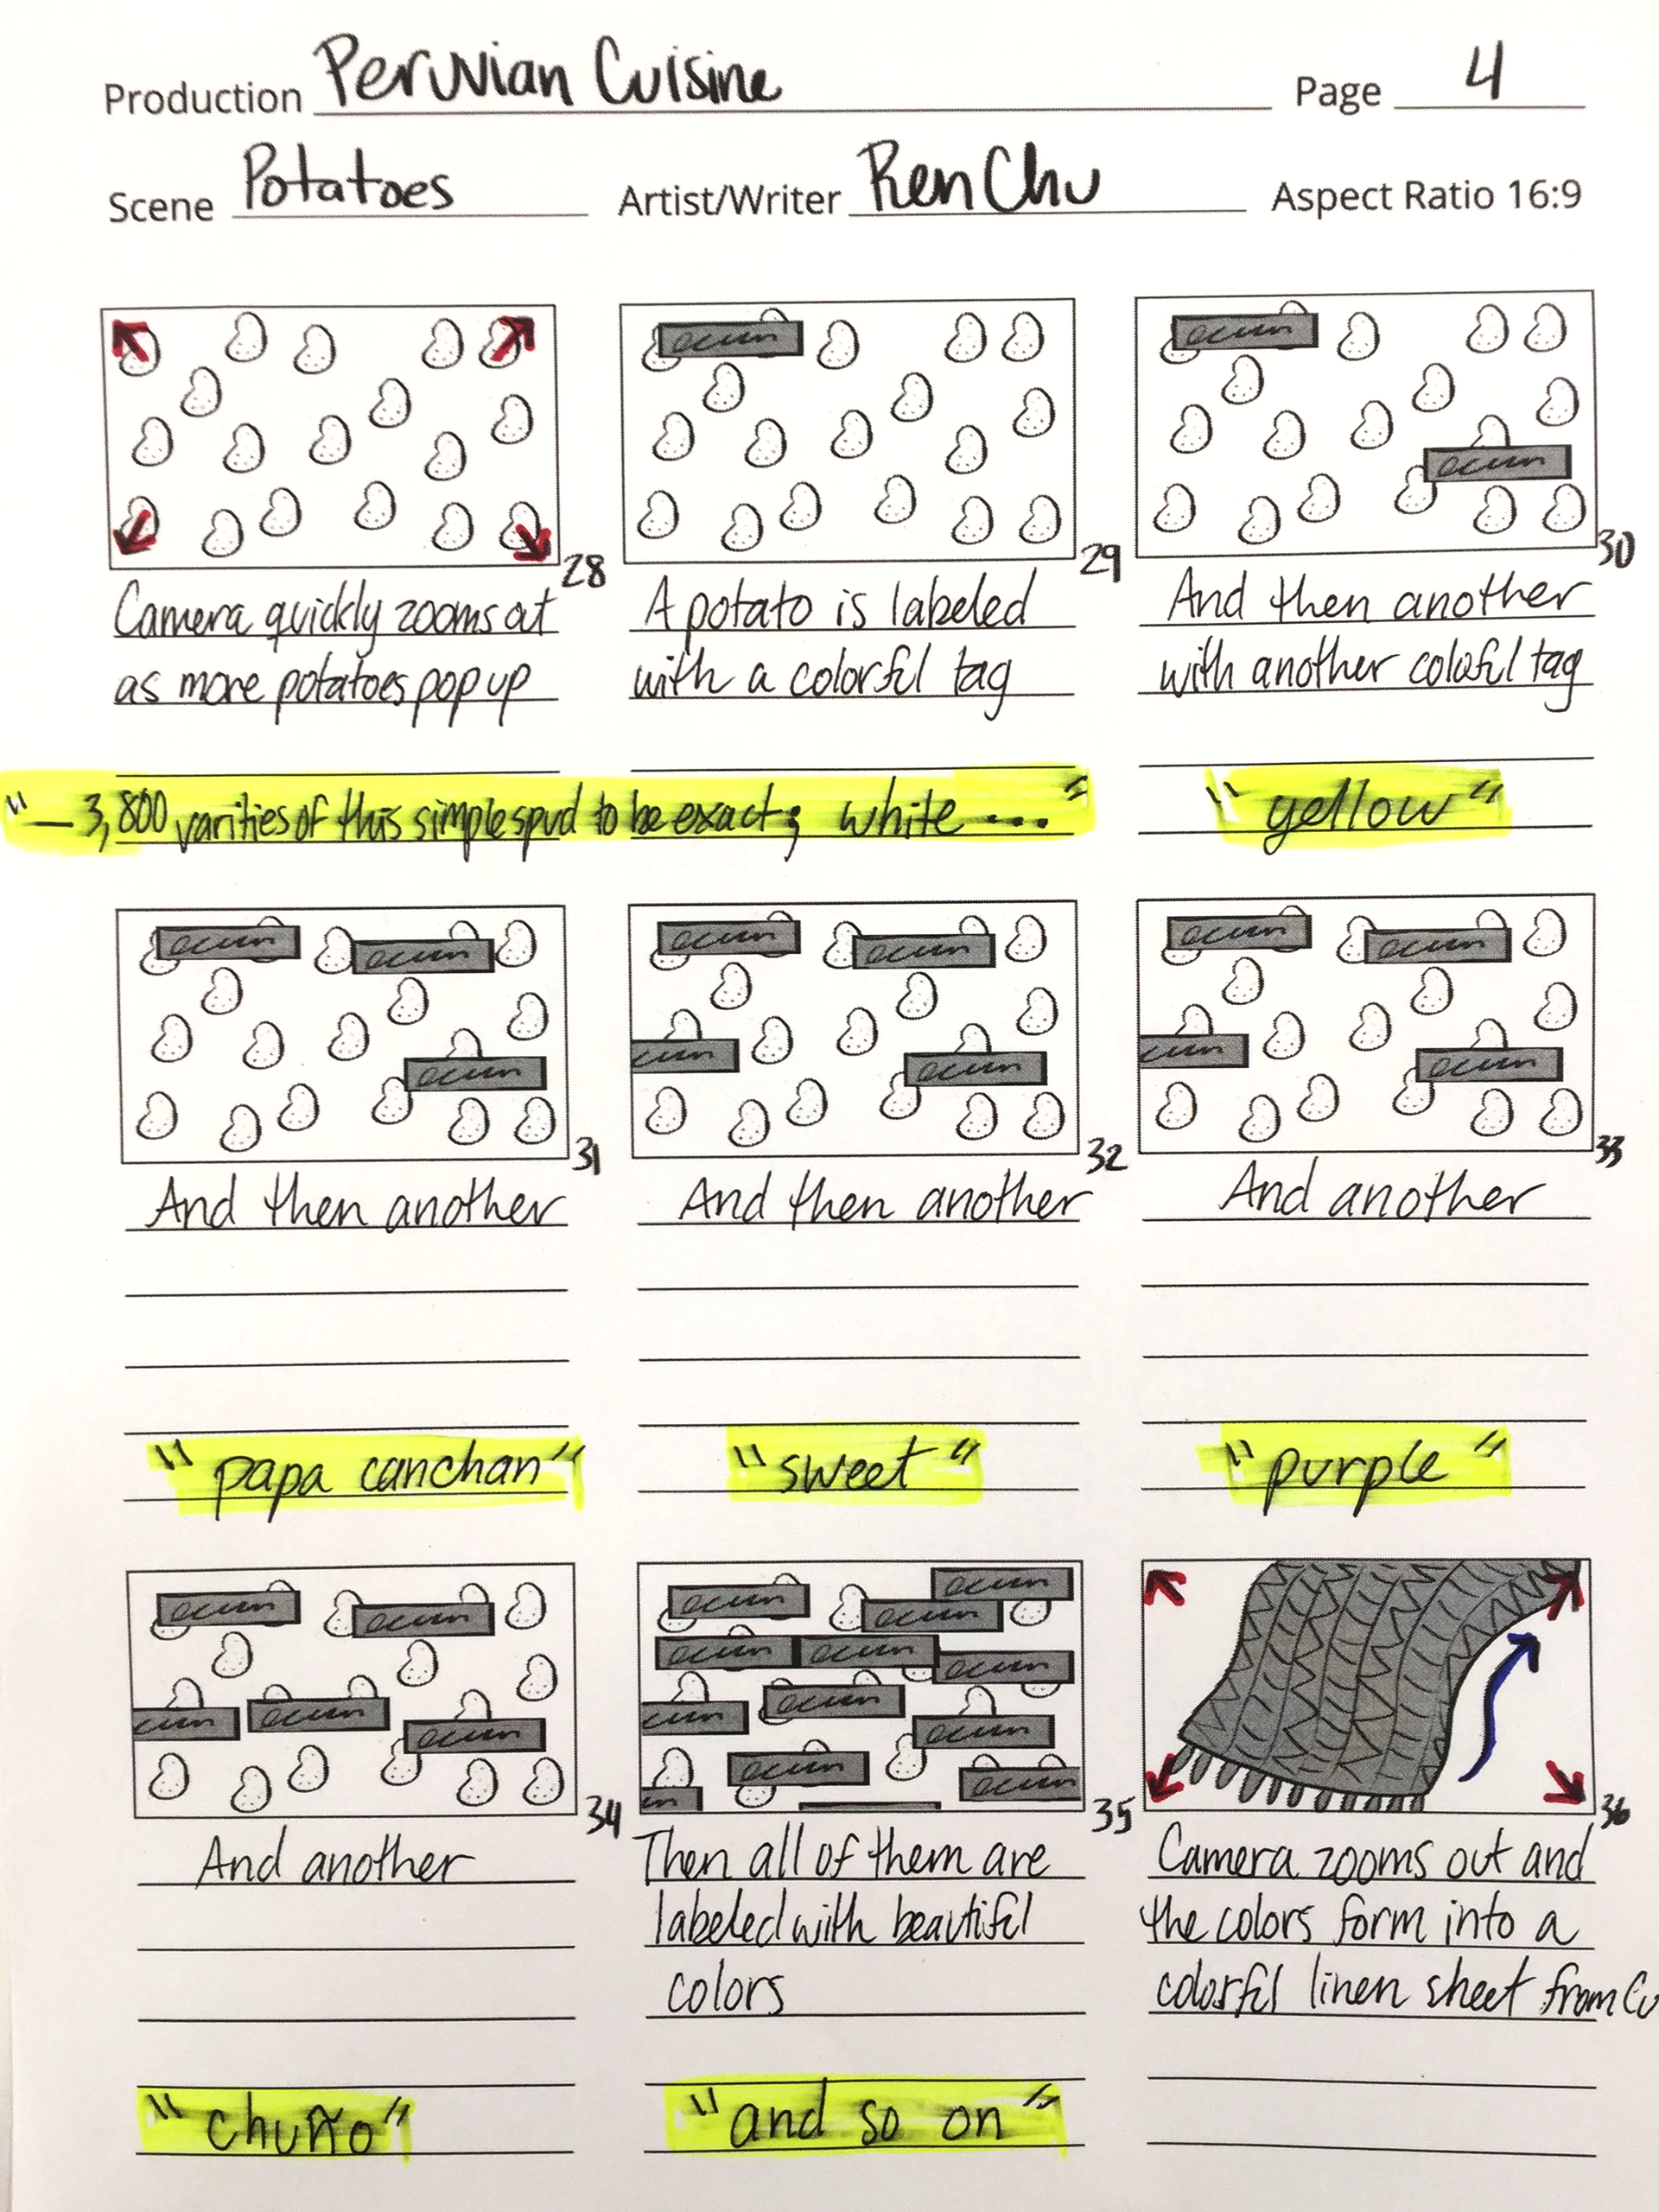 Production Peruvian Cuisine Page 4
Scene Potatoes Artist/Writer Ren Chu Aspect Ratio 16:9
28
Camera quickly zooms out
as more potatoes pop up
29
A potato is labeled
with a colorful tag
30
And then another
with another colorful tag
"—3,800 varities of this simple spud to be exact; white ...."
"yellow"
31
And then another
"papa canchan"
32
And then another
"sweet"
33
And another
"purple"
34
And another
"chuño"
35
Then all of them are
labeled with beautiful
colors
"and so on"
36
Camera zooms out and
the colors form into a
colorful linen sheet from Cu